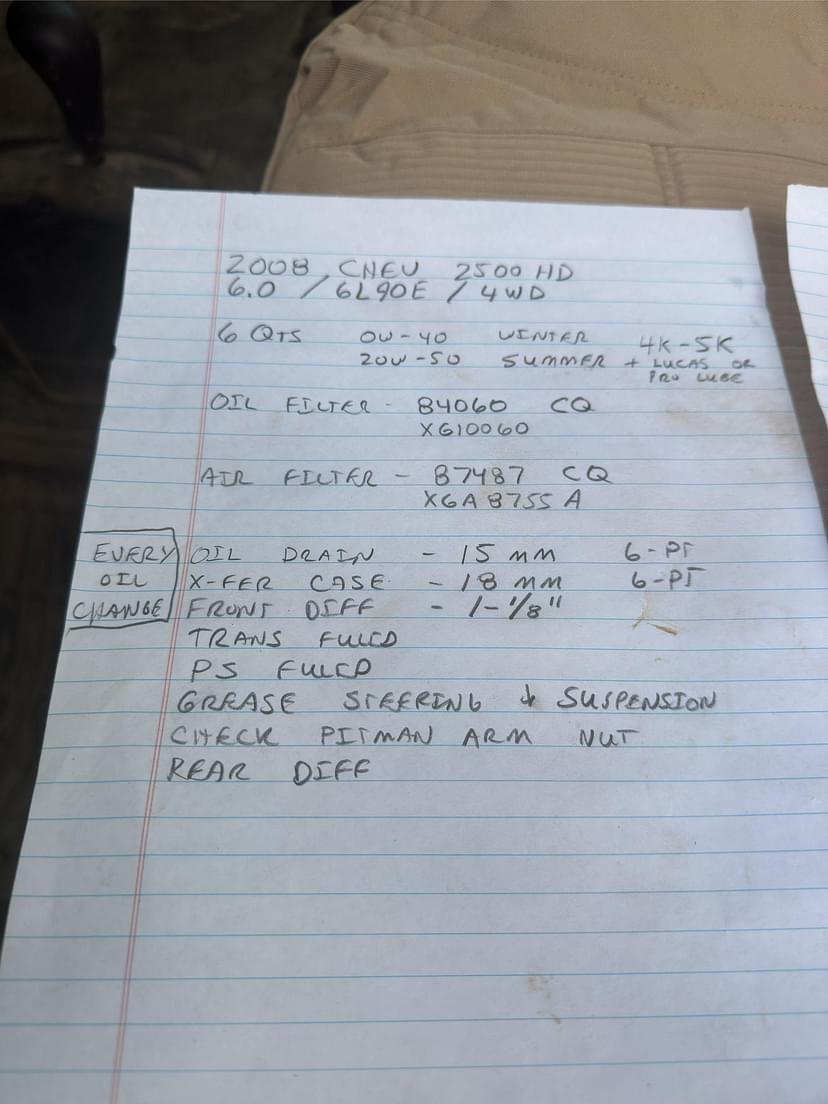 2008 CHEV 2500 HD
6.0 / 6L90E / 4WD
6 QTS 0W-40 WINTER 4K-5K
20W-50 SUMMER + LUCAS OR
PRO LUBE
OIL FILTER - 84060 CQ
XG10060
AIR FILTER - 87487 CQ
XGA8755A
EVERY OIL DRAIN - 15 MM 6-PT
OIL X-FER CASE - 18 MM 6-PT
CHANGE FRONT DIFF - 1-1/8"
TRANS FLUID
PS FLUID
GREASE STEERING & SUSPENSION
CHECK PITMAN ARM NUT
REAR DIFF